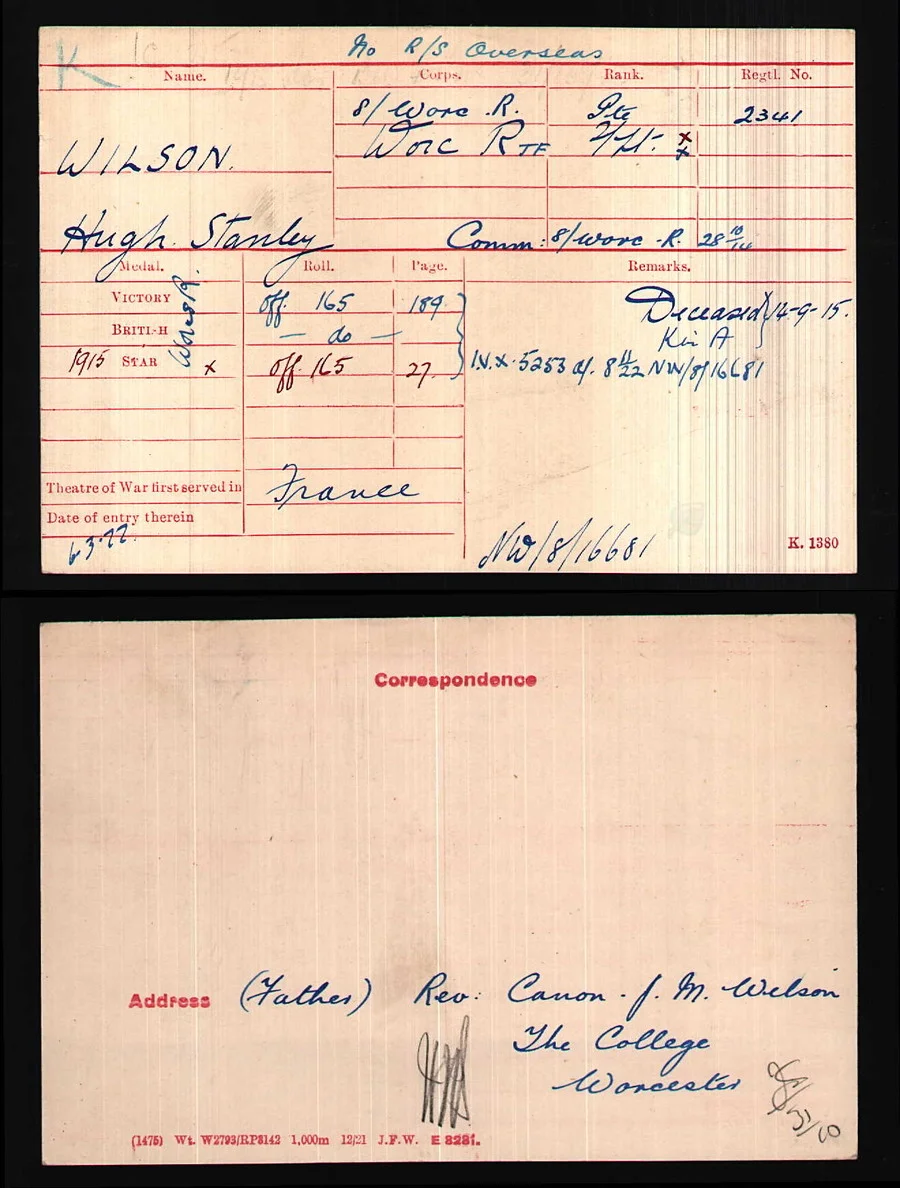 K
No R/S Overseas
Name. Corps. Rank. Regtl. No.
8/Worc .R. Pte 2341
WILSON. Worc R TF x
x
Hugh. Stanley Comm: 8/Worc .R. 28 10/14
Medal. Roll. Page. Remarks.
VICTORY Off. 165 189 Deceased 14-9-15.
BRITISH — do — Kin A
1915 STAR x Off. 165 27. I.V.X. 5253 d/. 8 11/22 NW/8/16681
Worc R.
Theatre of War first served in France
Date of entry therein
6.3.22.
NW/8/16681 K. 1380
Correspondence
Address (Father) Rev: Canon . J. M. Wilson
The College
Worcester
(1475) Wt. W2793/RP3142 1,000m 12/21 J.F.W. E 8281.